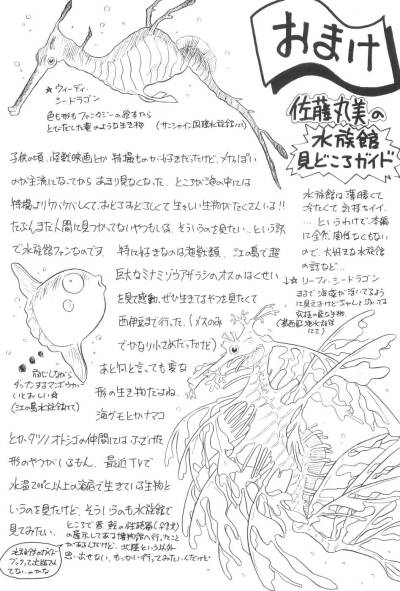 おまけ
佐藤丸美の
水族館
見どころガイド
水族館は薄暗くて
冷たくて気持ちイイ。
…というわけで、本編
に全然関係なくもない
ので、大好きな水族館
の話など…
↓☆リーフィーシードラゴン
まるで海藻が浮いてるよう
に見えるけど
(葛西臨海水族園
にて)
☆ウィーディ・
シードラゴン
色も形もファンタジーの絵本から
とびだした竜のような生き物
(サンシャイン国際水族館にて)
子供の頃、怪獣映画とか特撮ものが好きだったけど、メカっぽい
のが主流になってからあまり見なくなった。ところが海の中には
特撮よりケバケバしくて、おどろおどろしくて生々しい生物がたくさんいる!!
たぶんまだ人間に見つかってないやつもいる。そういうの見たい…という訳
で水族館ファンなのです。特に好きなのは海獣類、江の島で超
巨大なミナミゾウアザラシのオスのはくせい
を見て感動、ぜひ生きてるやつを見たくて
西伊豆まで行った。(メスのみ
でかなり小さめだったけど)
あとなんと言っても変な
形の生き物だよね。
海グモとかナマコ
とか、タツノオトシゴの仲間にはふざけた
形のやつがいるもん。最近TVで
水温200℃以上の海底で生きている生物と
いうのを見たけど、そういうのも水族館で
見てみたい。
だまするマンボウが
いとおしい☆
(江の島水族館にて)
ところで昔、
の展示してある博物館へ行ったこと
があるんだけど、北陸という以外
思い出せない。もっかい行ってみたいんだけど
水族館のガイド
ブックって出版さ
れてない…かな